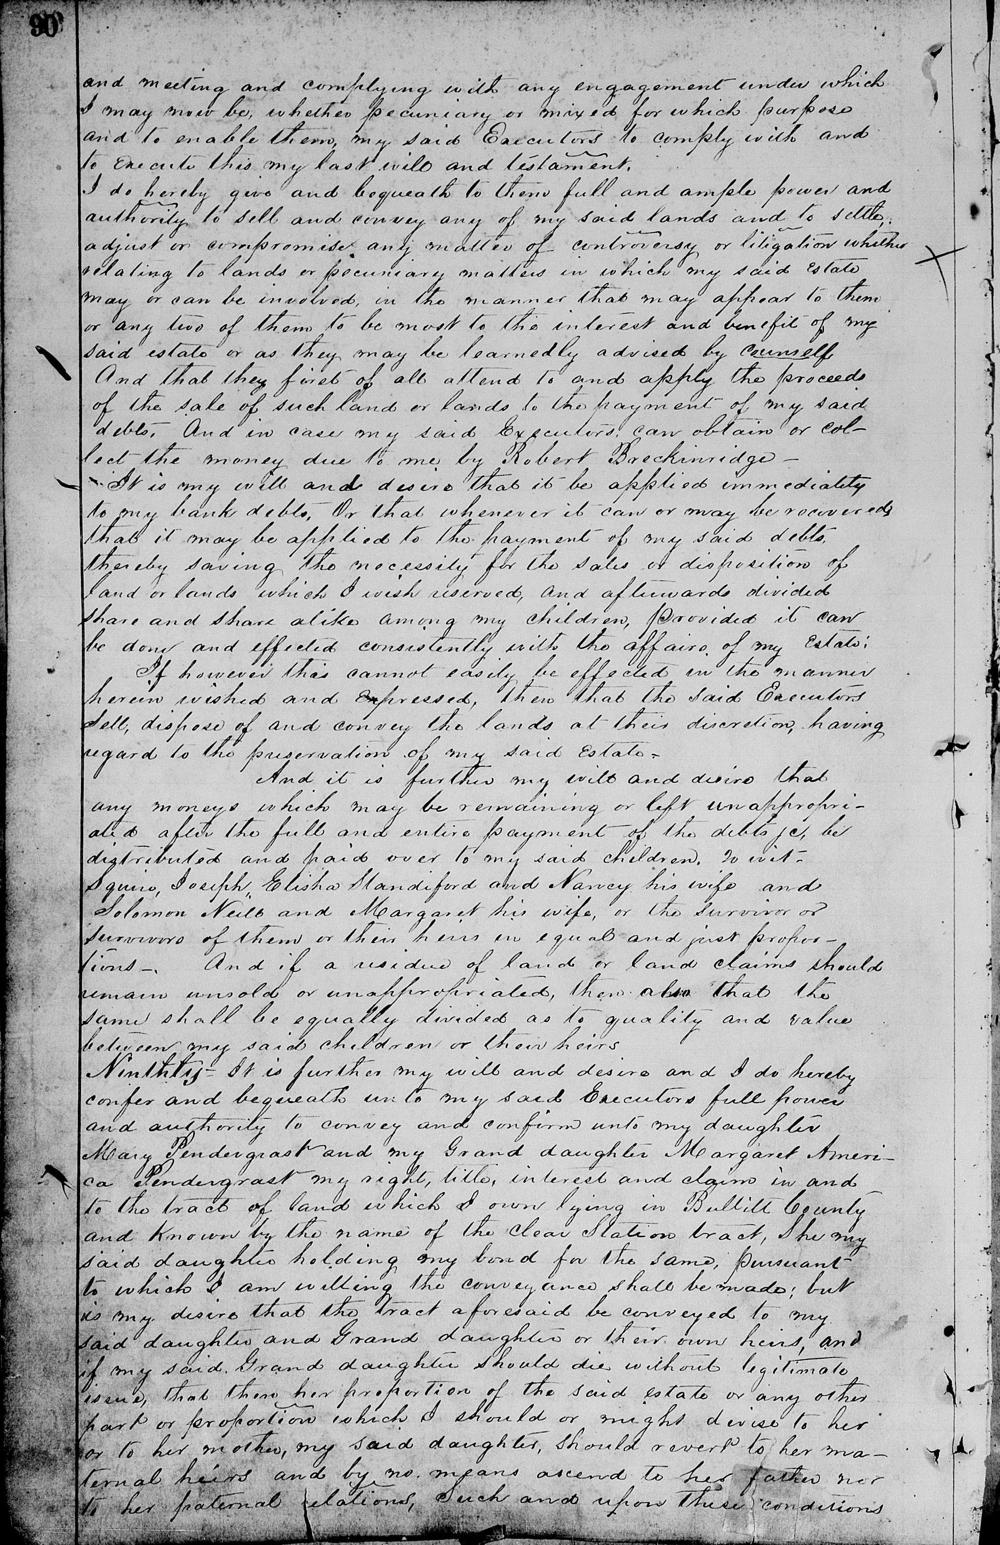 90
and meeting and complying with any engagement under which
I may now be, whether pecuniary or mixed for which purpose
and to enable them, my said Executors to comply with and
to Execute this my last will and testament.
I do hereby give and bequeath to them full and ample power and
authority to sell and convey any of my said lands and to settle.
adjust or compromise any matter of controversy or litigation whether
relating to lands or pecuniary matters in which my said Estate
may or can be involved, in the manner that may appear to them
or any two of them to be most to the interest and benefit of my
said estate or as they may be learnedly advised by Counself
And that they first of all attend to and apply the proceeds
of the sale of such land or lands to the payment of my said
debts. And in case my said Executors can obtain or col-
lect the money due to me by Robert Breckinridge -
It is my will and desire that it be applied immediality
to my bank debts, Or that whenever it can or may be recovered
that it may be applied to the payment of my said debts,
thereby saving the necessity for the sales or disposition of
land or lands which I wish reserved, and afterwards divided
share and share alike among my children, Provided it can
be done and effected consistently with the affairs of my Estate:
If however this cannot easily be effected in the manner
herein wished and Expressed, then that the said Executors
Sell, dispose of and convey the lands at their discretion, having
regard to the preservation of my said Estate -
And it is further my will and desire that
any moneys which may be remaining or left unappropri-
ated after the full and entire payment of the debts &c, be
distributed and paid over to my said children, To wit -
Squire, Joseph, Elisha Standiford and Nancy his wife and
Solomon Neill and Margaret his wife, or the survivor or
Survivors of them or their heirs in equal and just propor-
tions -. And if a residue of land or land claims should
remain unsold or unappropriated, then also that the
same shall be equally divided as to quality and value
between my said children or their heirs
Ninthly - It is further my will and desire and I do hereby
confer and bequeath unto my said Executors full power
and authority to convey and confirm unto my daughter
Mary Pendergrast and my Grand daughter Margaret Ameri-
ca Pendergrast my right, title, interest and claim in and
to the tract of land which I own lying in Bullitt County
and Known by the name of the Clear Station tract, She my
said daughter holding my bond for the same, Pursuant
to which I am willing the conveyance shall be made; but
is my desire that the tract aforesaid be conveyed to my
said daughter and Grand daughter or their own heirs, and
if my said Grand daughter should die without legitimate
issue, that then her proportion of the said estate or any other
part or proportion which I should or might devise to her
or to her mother, my said daughter, should revert to her ma-
ternal heirs and by no means ascend to her father nor
to her paternal relations, Such and upon these conditions